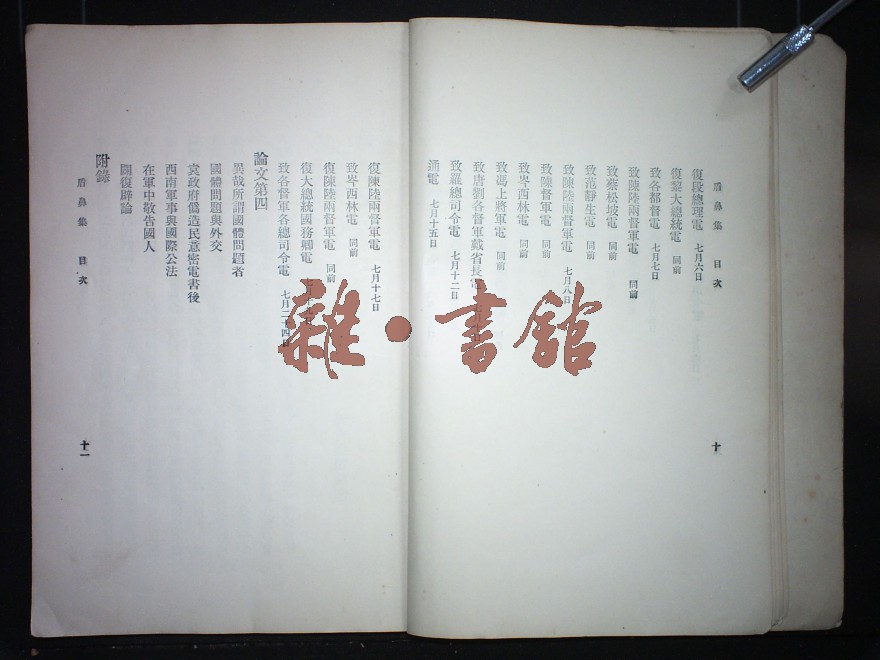 盾鼻集　目次
復段總理電　七月六日
復黎大總統電　同前
致各都督電　七月七日
致陳陸兩督軍電　同前
致蔡松坡電　同前
致范靜生電　同前
致陳總陸兩督軍電　七月八日
致陳督軍電　同前
致岑西林電　同前
致馮上將軍電　同前
致唐劉各督軍戴省長電
致羅總司令電　七月十二日
通電　七月十五日
十
復陳陸兩督軍電　七月十七日
致岑西林電　同前
復陳陸兩督軍電　同前
復大總統國務卿電
致各督軍各總司令電　七月二十四日
論文第四
異哉所謂國體問題者
國體問題與外交
袁政府僞造民意密電書後
西南軍事與國際公法
在軍中敬告國人
附錄
闢復辟論
盾鼻集　目次
十一
雜·書館